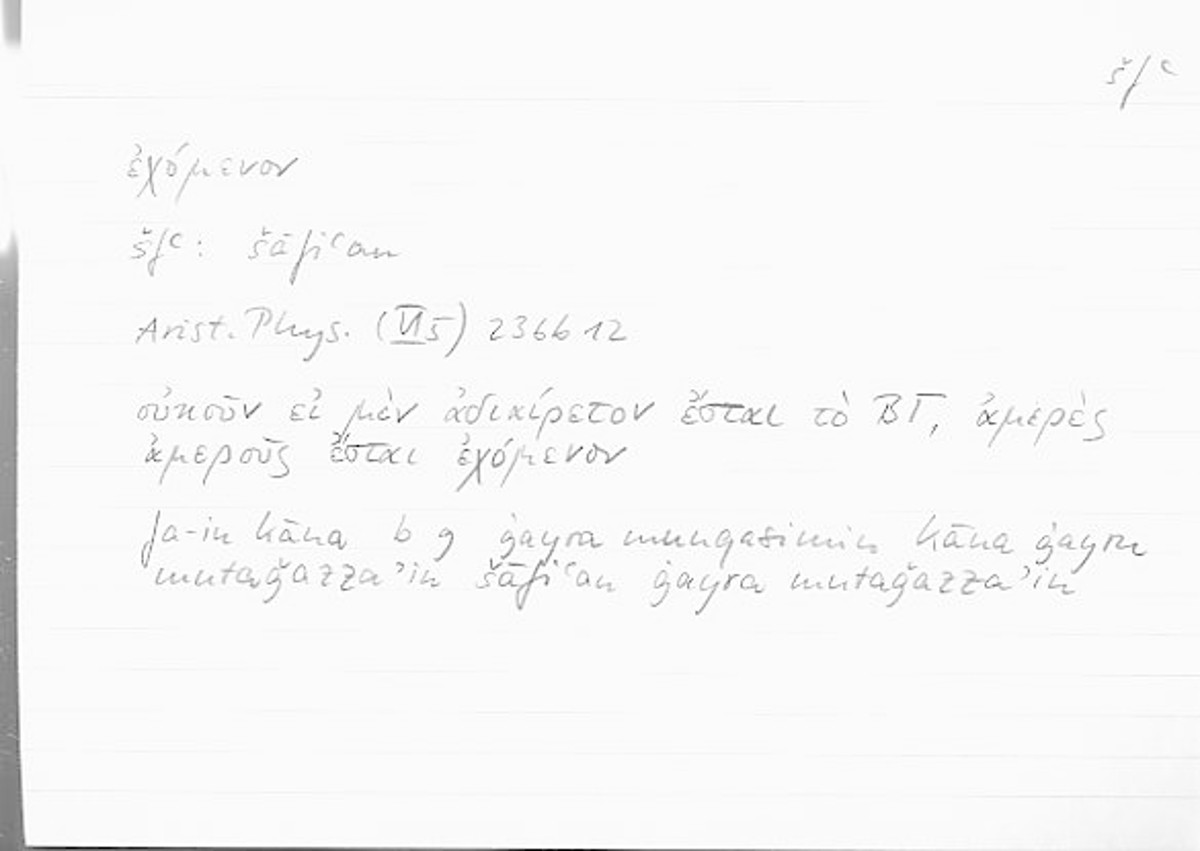 šfʿ
ἐχόμενον
šfʿ: šāfiʿan
Arist. Phys. (VI5) 236b12
οὐκοῦν εἰ μὲν ἀδιαίρετον ἔσται τὸ ΒΓ, ἀμερὲς
ἀμεροῦς ἔσται ἐχόμενον
fa-in kāna b g ġayra munqasimin kāna ġayru
mutaǧazzaʾin šāfiʿan ġayra mutaǧazzaʾin